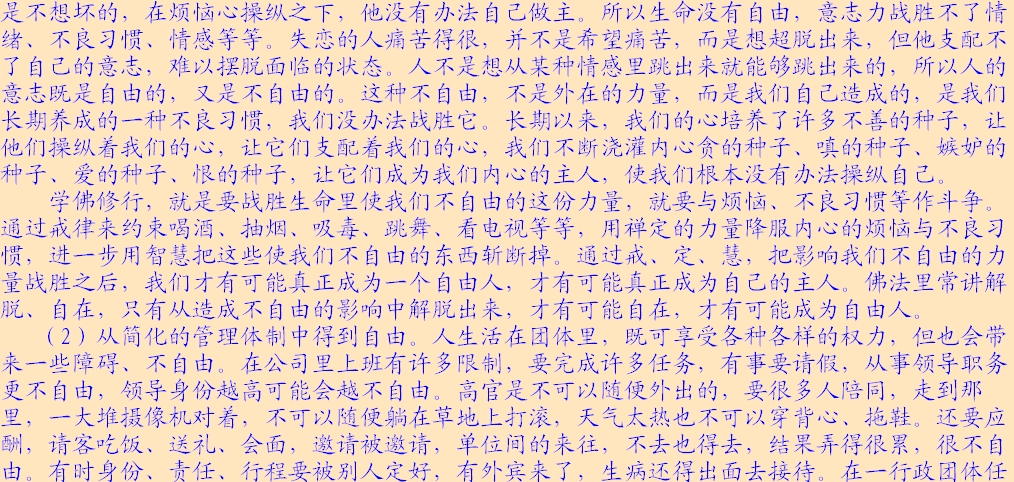 是不想坏的，在烦恼心操纵之下，他没有办法自己做主。所以生命没有自由，意志力战胜不了情
绪、不良习惯、情感等等。失恋的人痛苦得很，并不是希望痛苦，而是想超脱出来，但他支配不
了自己的意志，难以摆脱面临的状态。人不是想从某种情感里跳出来就能够跳出来的，所以人的
意志既是自由的，又是不自由的。这种不自由，不是外在的力量，而是我们自己造成的，是我们
长期养成的一种不良习惯，我们没办法战胜它。长期以来，我们的心培养了许多不善的种子，让
他们操纵着我们的心，让它们支配着我们的心，我们不断浇灌内心贪的种子、嗔的种子、嫉妒的
种子、爱的种子、恨的种子，让它们成为我们内心的主人，使我们根本没有办法操纵自己。
学佛修行，就是要战胜生命里使我们不自由的这份力量，就要与烦恼、不良习惯等作斗争。
通过戒律来约束喝酒、抽烟、吸毒、跳舞、看电视等等，用禅定的力量降服内心的烦恼与不良习
惯，进一步用智慧把这些使我们不自由的东西斩断掉。通过戒、定、慧，把影响我们不自由的力
量战胜之后，我们才有可能真正成为一个自由人，才有可能真正成为自己的主人。佛法里常讲解
脱、自在，只有从造成不自由的影响中解脱出来，才有可能自在，才有可能成为自由人。
（2）从简化的管理体制中得到自由。人生活在团体里，既可享受各种各样的权力，但也会带
来一些障碍、不自由。在公司里上班有许多限制，要完成许多任务，有事要请假，从事领导职务
更不自由，领导身份越高可能会越不自由。高官是不可以随便外出的，要很多人陪同，走到那
里，一大堆摄像机对着，不可以随便躺在草地上打滚，天气太热也不可以穿背心、拖鞋。还要应
酬，请客吃饭、送礼、会面，邀请被邀请，单位间的来往，不去也得去，结果弄得很累，很不自
由。有时身份、责任、行程要被别人定好，有外宾来了，生病还得出面去接待。在一行政团体任